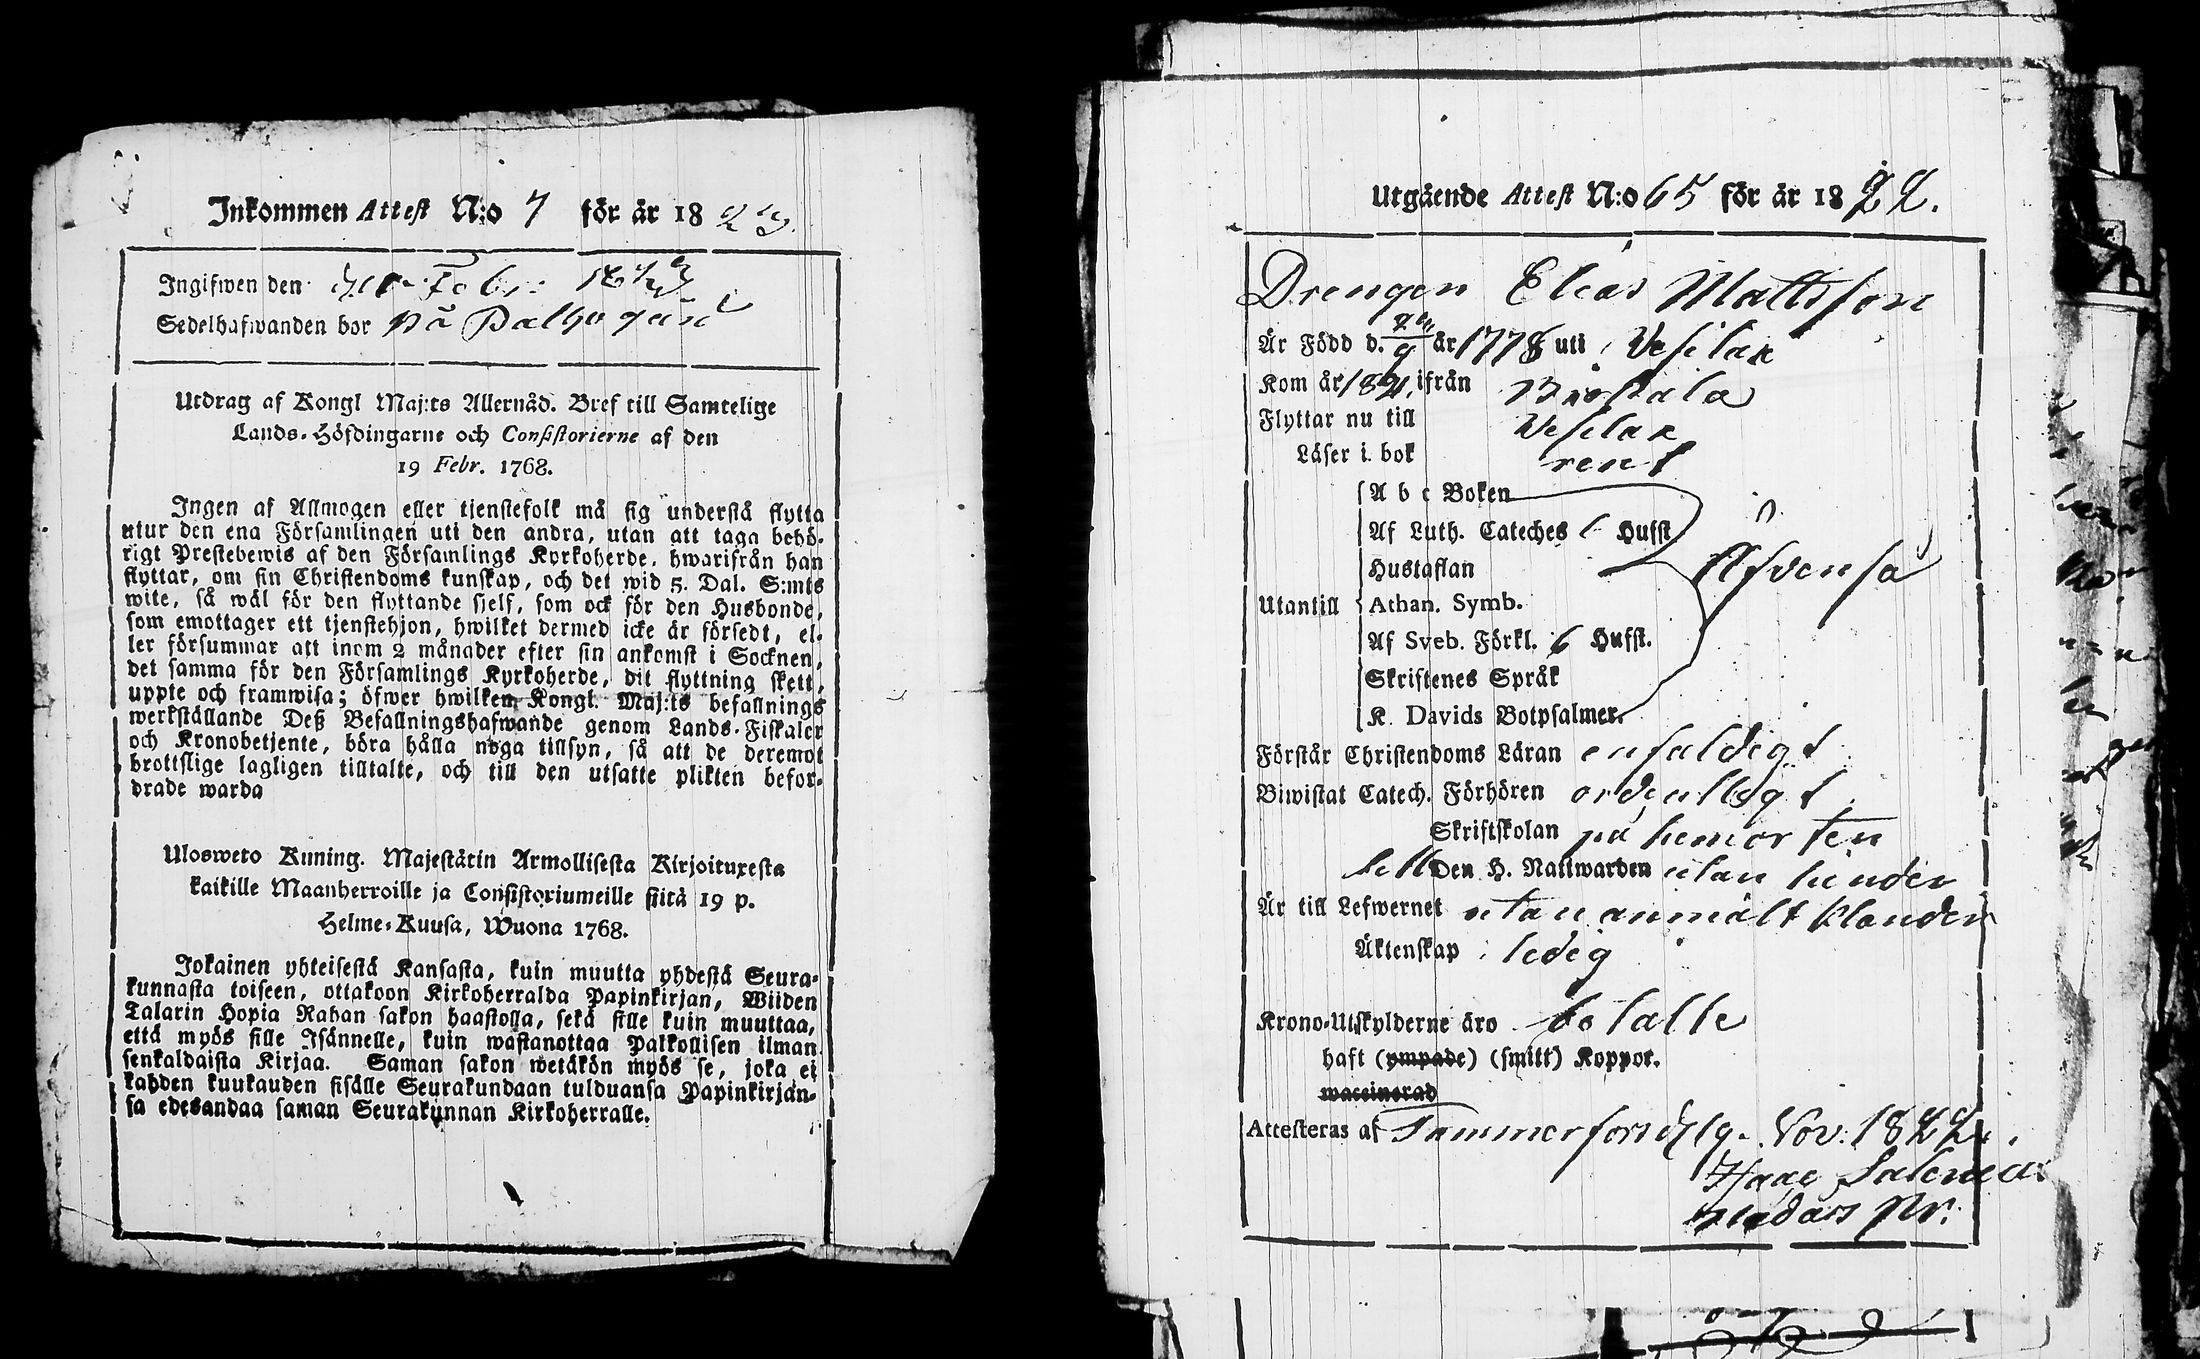 Inkommen Attest N:o 7 för år 1823.
Ingifwen den Febr: 1823
Sedelhafwanden bor på
Utdrag af Kongl Maj:ts Allernåd. Bref till Samtelige
Lands-Höfdingarne och Consistorierne af den
19 Febr. 1768.
Ingen af Allmogen eller tjenstefolk må sig understå flytta
utur den ena Församlingen uti den andra, utan att taga behö-
rigt Prestebewis af den Församlings Kyrkoherde, hwarifrån han
flyttar, om sin Christendoms kunskap, och det wid 5. Dal. S:mts
wite, så wäl för den flyttande sjelf, som ock för den Husbonde,
som emottager ett tjenstehjon, hwilket dermed icke är försedt, el-
ler försummar att inom 2 månader efter sin ankomst i Socknen,
det samma för den Församlings Kyrkoherde, dit flyttning skett,
uppte och framwisa; öfwer hwilken Kongl. Maj:ts befallnings
werkställande Deß Befallningshafwande genom Lands-Fiskaler
och Kronobetjente, böra hålla noga tillsyn, så att de deremot
brottslige lagligen tilltalte, och till den utsatte plikten befor-
drade warda
Ulosweto Kuning. Majestätin Armollisesta Kirjoituxesta
kaikille Maanherroille ja Consistoriumeille siitä 19 p.
Helme-Kuusa, Wuona 1768.
Jokainen yhteisestä Kansasta, kuin muutta yhdestä Seura-
kunnasta toiseen, ottakoon Kirkoherralda Papinkirjan, Wiiden
Talarin Hopia Rahan sakon haastolla, sekä sille kuin muuttaa,
että myös sille Isännelle, kuin wastanottaa Palkollisen ilman
senkaldaista Kirjaa. Saman sakon wetäkön myös se, joka ei
kahden kuukauden sisälle Seurakundaan tulduansa Papinkirjän-
sa edesandaa saman Seurakunnan Kirkoherralle.
Utgående Attest N:o 65 för år 1822.
Drengen Elias Mattsson
Är Född d. 7/9 år 1778 uti Vesilax
Kom år 1821 ifrån Birkala
Flyttar nu till Vesilax
Läser i bok rent
A b c Boken
Af Luth. Cateches Hufst
Hustaflan
Utantill Athan. Symb.
Af Sveb. Förkl. 6 Hufst.
Skriftenes Språk
K. Davids Botpsalmer.
Förstår Christendoms Läran enfaldigt
Biwistat Catech. Förhören ordentligt
Skriftskolan på hemorten
Den H. Nattwarden utan hinder
Är till Lefwernet utan anmält klander
Äktenskap ledig
Krono-Utskylderne äro betalte
haft (ympade) (smitt) Koppor.
waccinerad
Attesteras af Tammerfors d 19 Nov. 1822.
Isaac Salenius